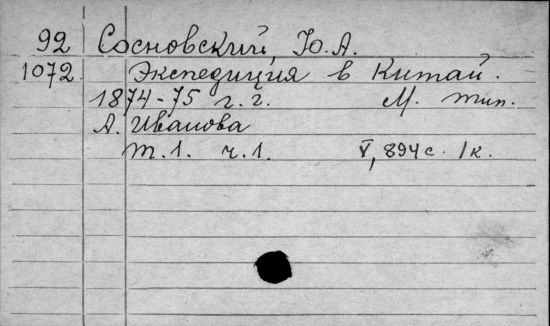 92 Сосновский, Ю.А.
1072. Экспедиция в Китай.
1874-75 г.г. М. тип.
А. Иванова
т.1. ч.1. V, 894 с. 1к.